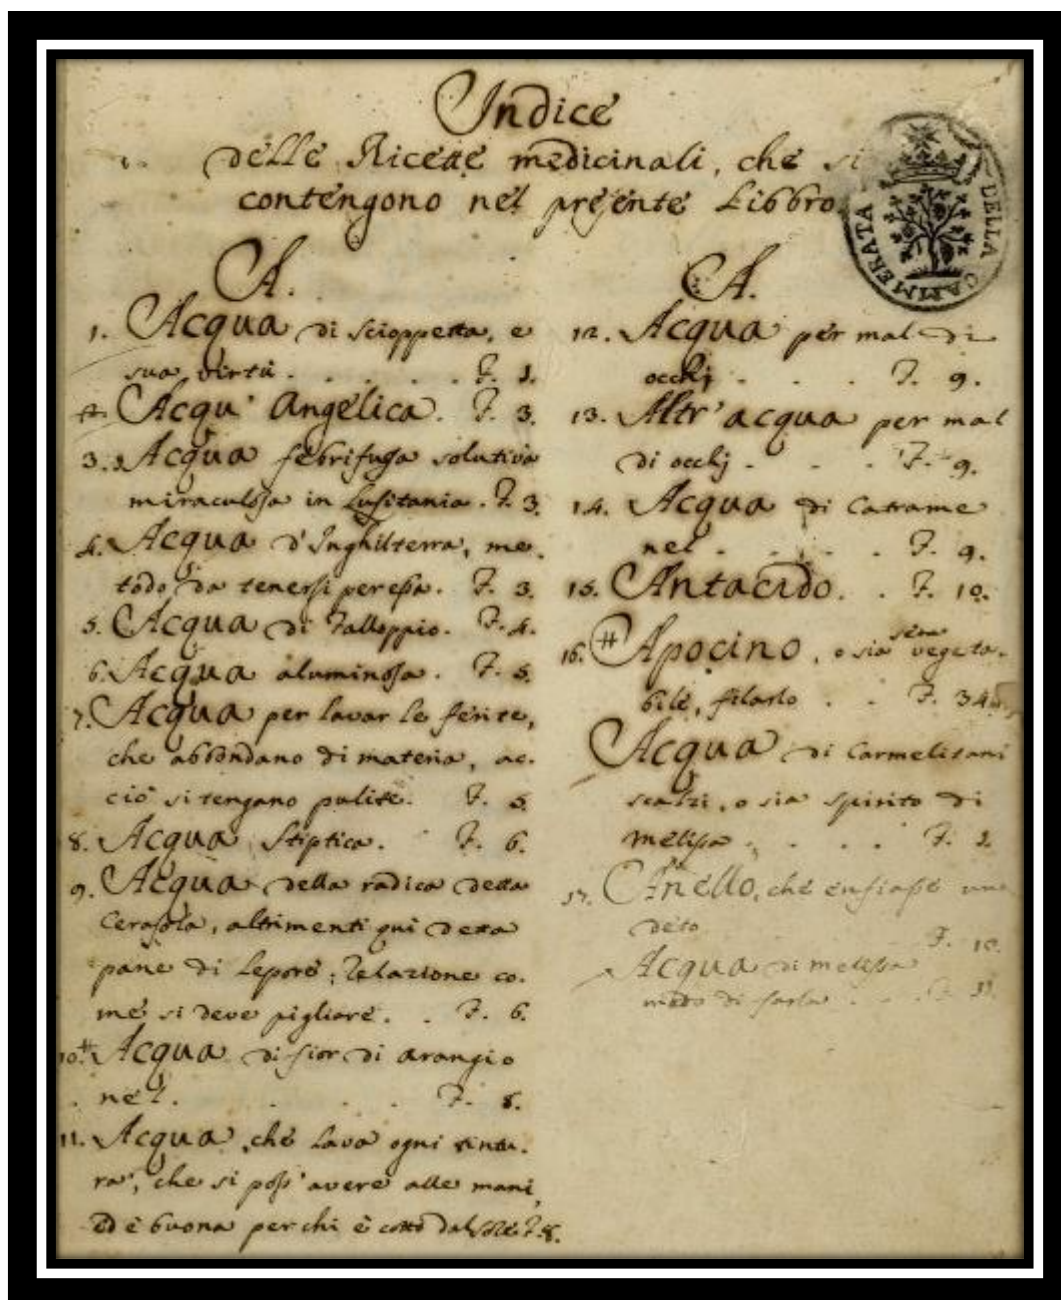 Indice
delle Ricette medicinali, che si
contengono nel presente Libbro.
CAMMERATA DELLA
A.
1. Acqua di scioppetta, e
sua virtù . . . . . F. 1.
Acqu' Angelica. F. 3.
3. Acqua febrifuga solutiva
miraculosa in Lusitania. F. 3.
4. Acqua d'Inghilterra, me.
todo da tenersi per essa. F. 3.
5. Acqua di Falloppio. F. 4.
6. Acqua aluminosa. F. 5.
7. Acqua per lavar le ferite,
che abbondano di materia, ac.
ciò si tengano pulite. F. 5.
8. Acqua stiptica. F. 6.
9. Acqua della radica detta
Cerasola, altrimenti qui detta
pane di Lepore; relazione co.
me si deve pigliare. . F. 6.
10. # Acqua di fior di arangio
nel. . . . . F. 8.
11. Acqua, che lava ogni tintu.
ra, che si poss' avere alle mani,
ed è buona per chi è cotto dal sole F. 8.
A.
12. Acqua per mal di
occhj . . . F. 9.
13. Altr' acqua per mal
di occhj . . . F. 9.
14. Acqua di Catrame
nel . . . . F. 9.
15. Antacido. . F. 10.
16. # Apocino, o sia seta vegeta.
bile, filarlo . . F. 34.
Acqua di Carmelitani
scalzi, o sia spirito di
melissa . . . . F. 2.
17. Anello, che enfiasse un
deto F. 10.
Acqua di melissa
modo di farla . . . F. 11.